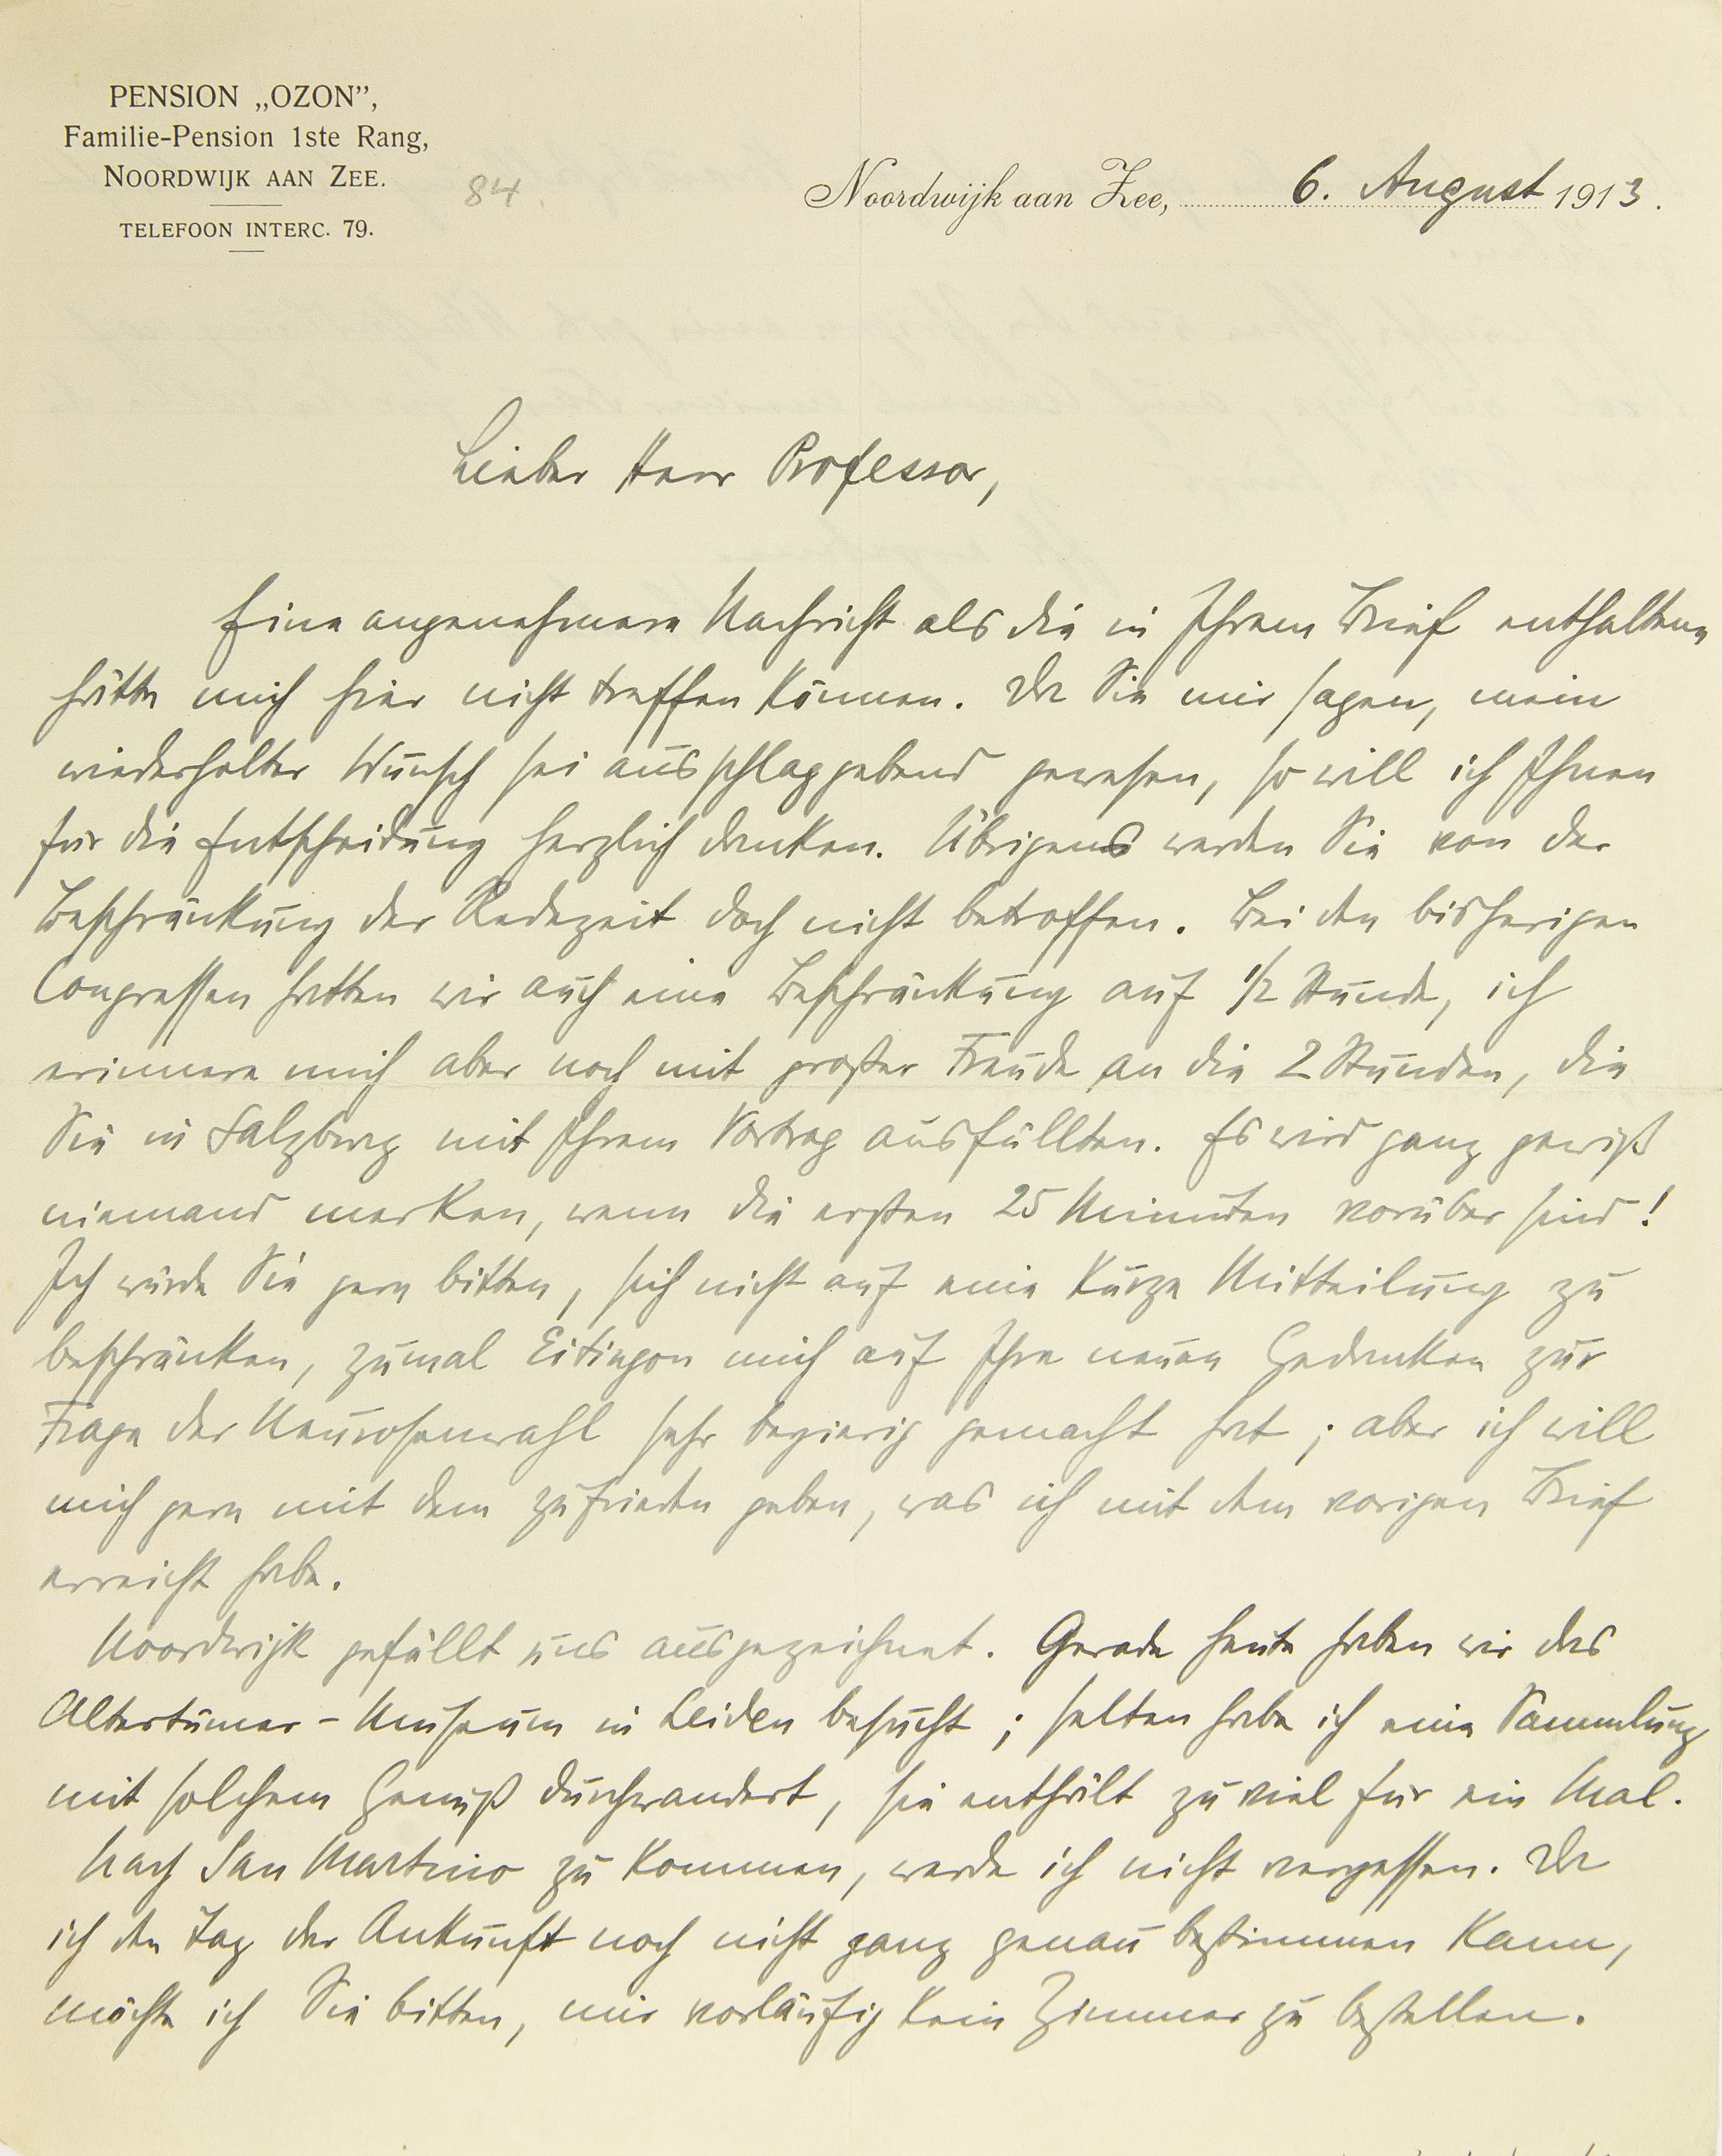 PENSION „OZON”,
Familie-Pension 1ste Rang,
NOORDWIJK AAN ZEE.
TELEFOON INTERC. 79.
84.
Noordwijk aan Zee, 6. August 1913.
Lieber Herr Professor,
Eine angenehmere Nachricht als die in Ihrem Brief enthaltene
hätte mich hier nicht treffen können. Da Sie mir sagen, mein
wiederholter Wunsch sei ausschlaggebend gewesen, so will ich Ihnen
für die Entscheidung herzlich danken. Übrigens werden Sie von der
Beschränkung der Redezeit doch nicht betroffen. Bei den bisherigen
Congressen hatten wir auch eine Beschränkung auf 1/2 Stunde, ich
erinnere mich aber noch mit großer Freude an die 2 Stunden, die
Sie in Salzburg mit Ihrem Vortrag ausfüllten. Es wird ganz gewiß
niemand merken, wenn die ersten 25 Minuten vorüber sind!
Ich würde Sie gern bitten, sich nicht auf eine kurze Mitteilung zu
beschränken, zumal Eitingon mich auf Ihre neuen Gedanken zur
Frage der Neurosenwahl sehr begierig gemacht hat; aber ich will
mich gern mit dem zufrieden geben, was ich mit dem vorigen Brief
erreicht habe.
Noordwijk gefällt uns ausgezeichnet. Gerade heute haben wir das
Altertümer-Museum in Leiden besucht; selten habe ich eine Sammlung
mit solchem Genuß durchwandert, sie enthält zu viel für ein Mal.
Nach San Martino zu kommen, werde ich nicht vergessen. Da
ich den Tag der Ankunft noch nicht ganz genau bestimmen kann,
möchte ich Sie bitten, mir vorläufig kein Zimmer zu bestellen.